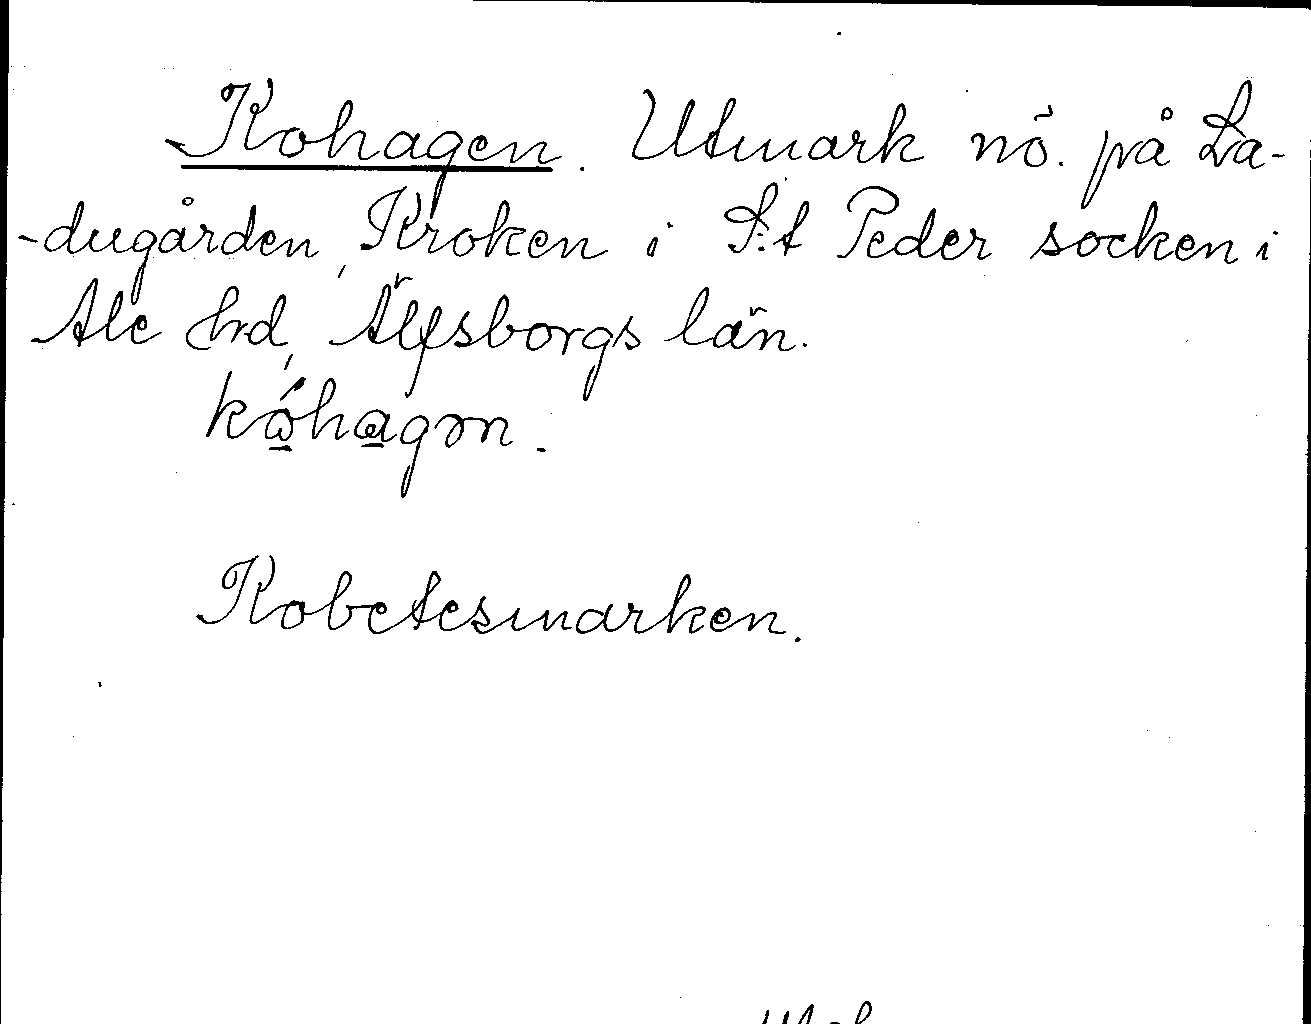 Kohagen. Utmark nö. på La-
-dugården, Kroken i S:t Peder socken i
Ale hrd, Älfsborgs län.
kώ̲hα̲gən.
Kobetesmarken.